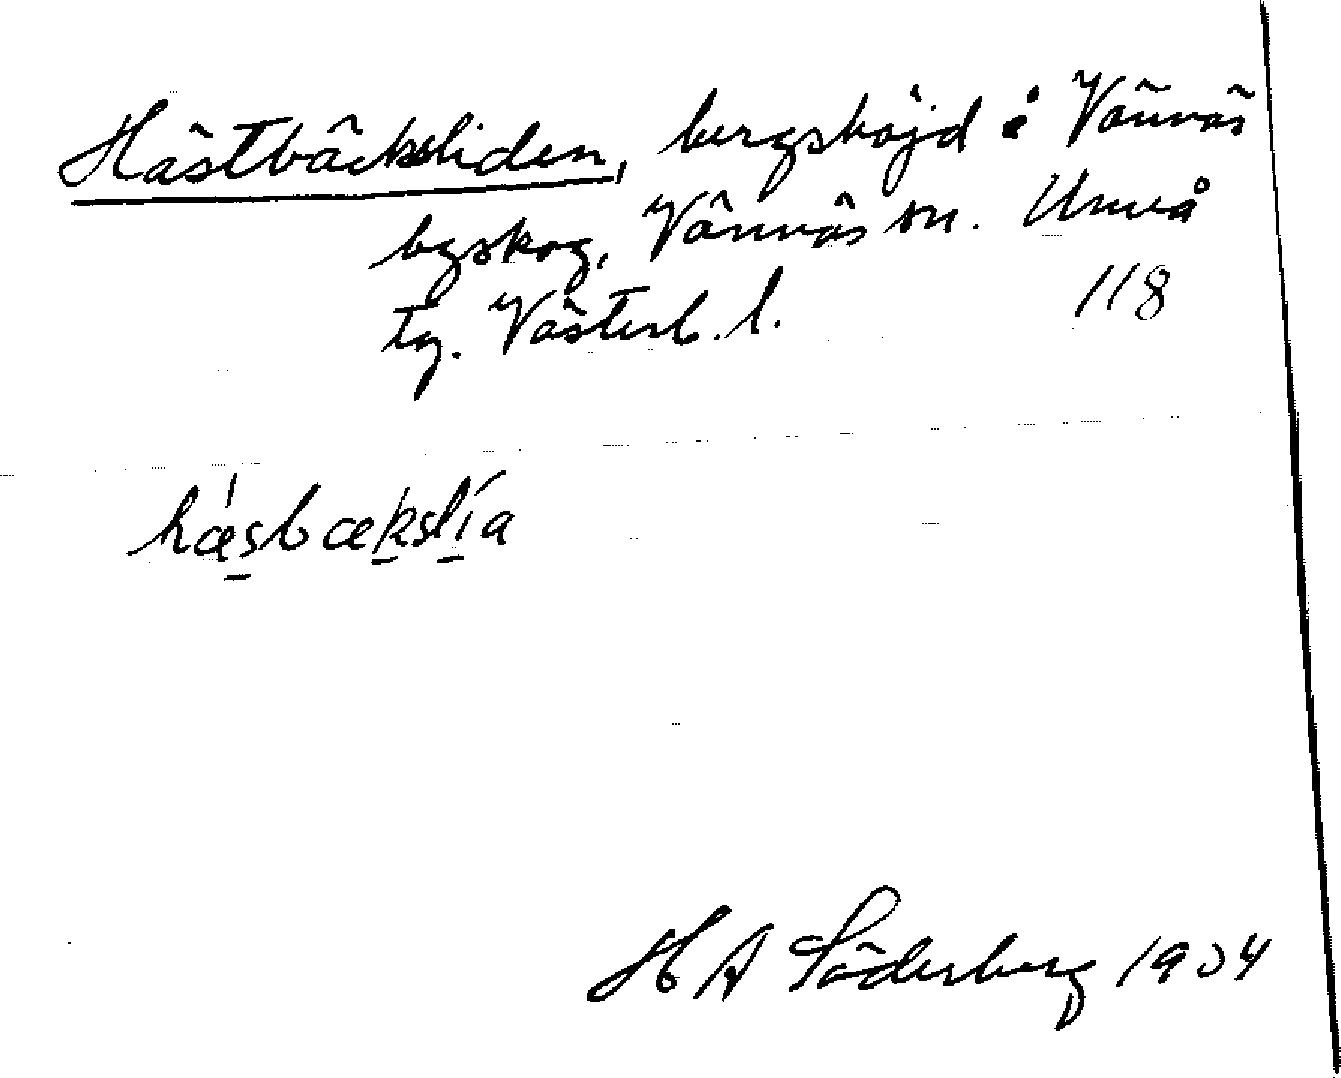 Hästbäcksliden, bergshöjd å Vännäs
bgskog, Vännäs sn. Umeå
tg. Västerb. l. 118
hæsbækslía
H A Söderberg 1904